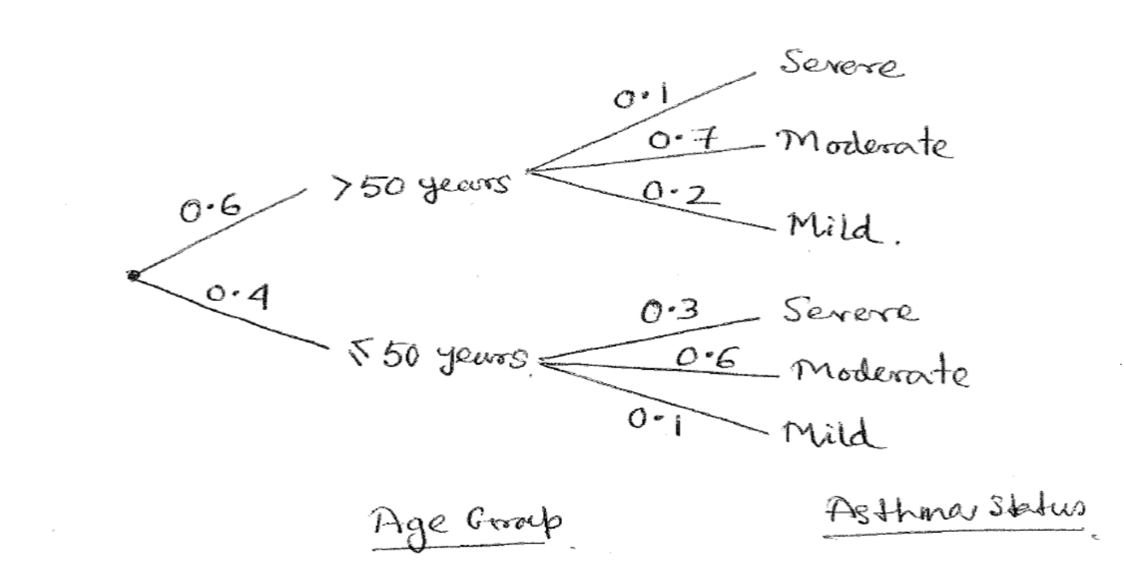 Severe
0.1
0.7 Moderate
0.6 >50 years
0.2
Mild.
0.4
0.3 Severe
≤50 years.
0.6 Moderate
0.1 Mild
Age Group.
Asthma Status.